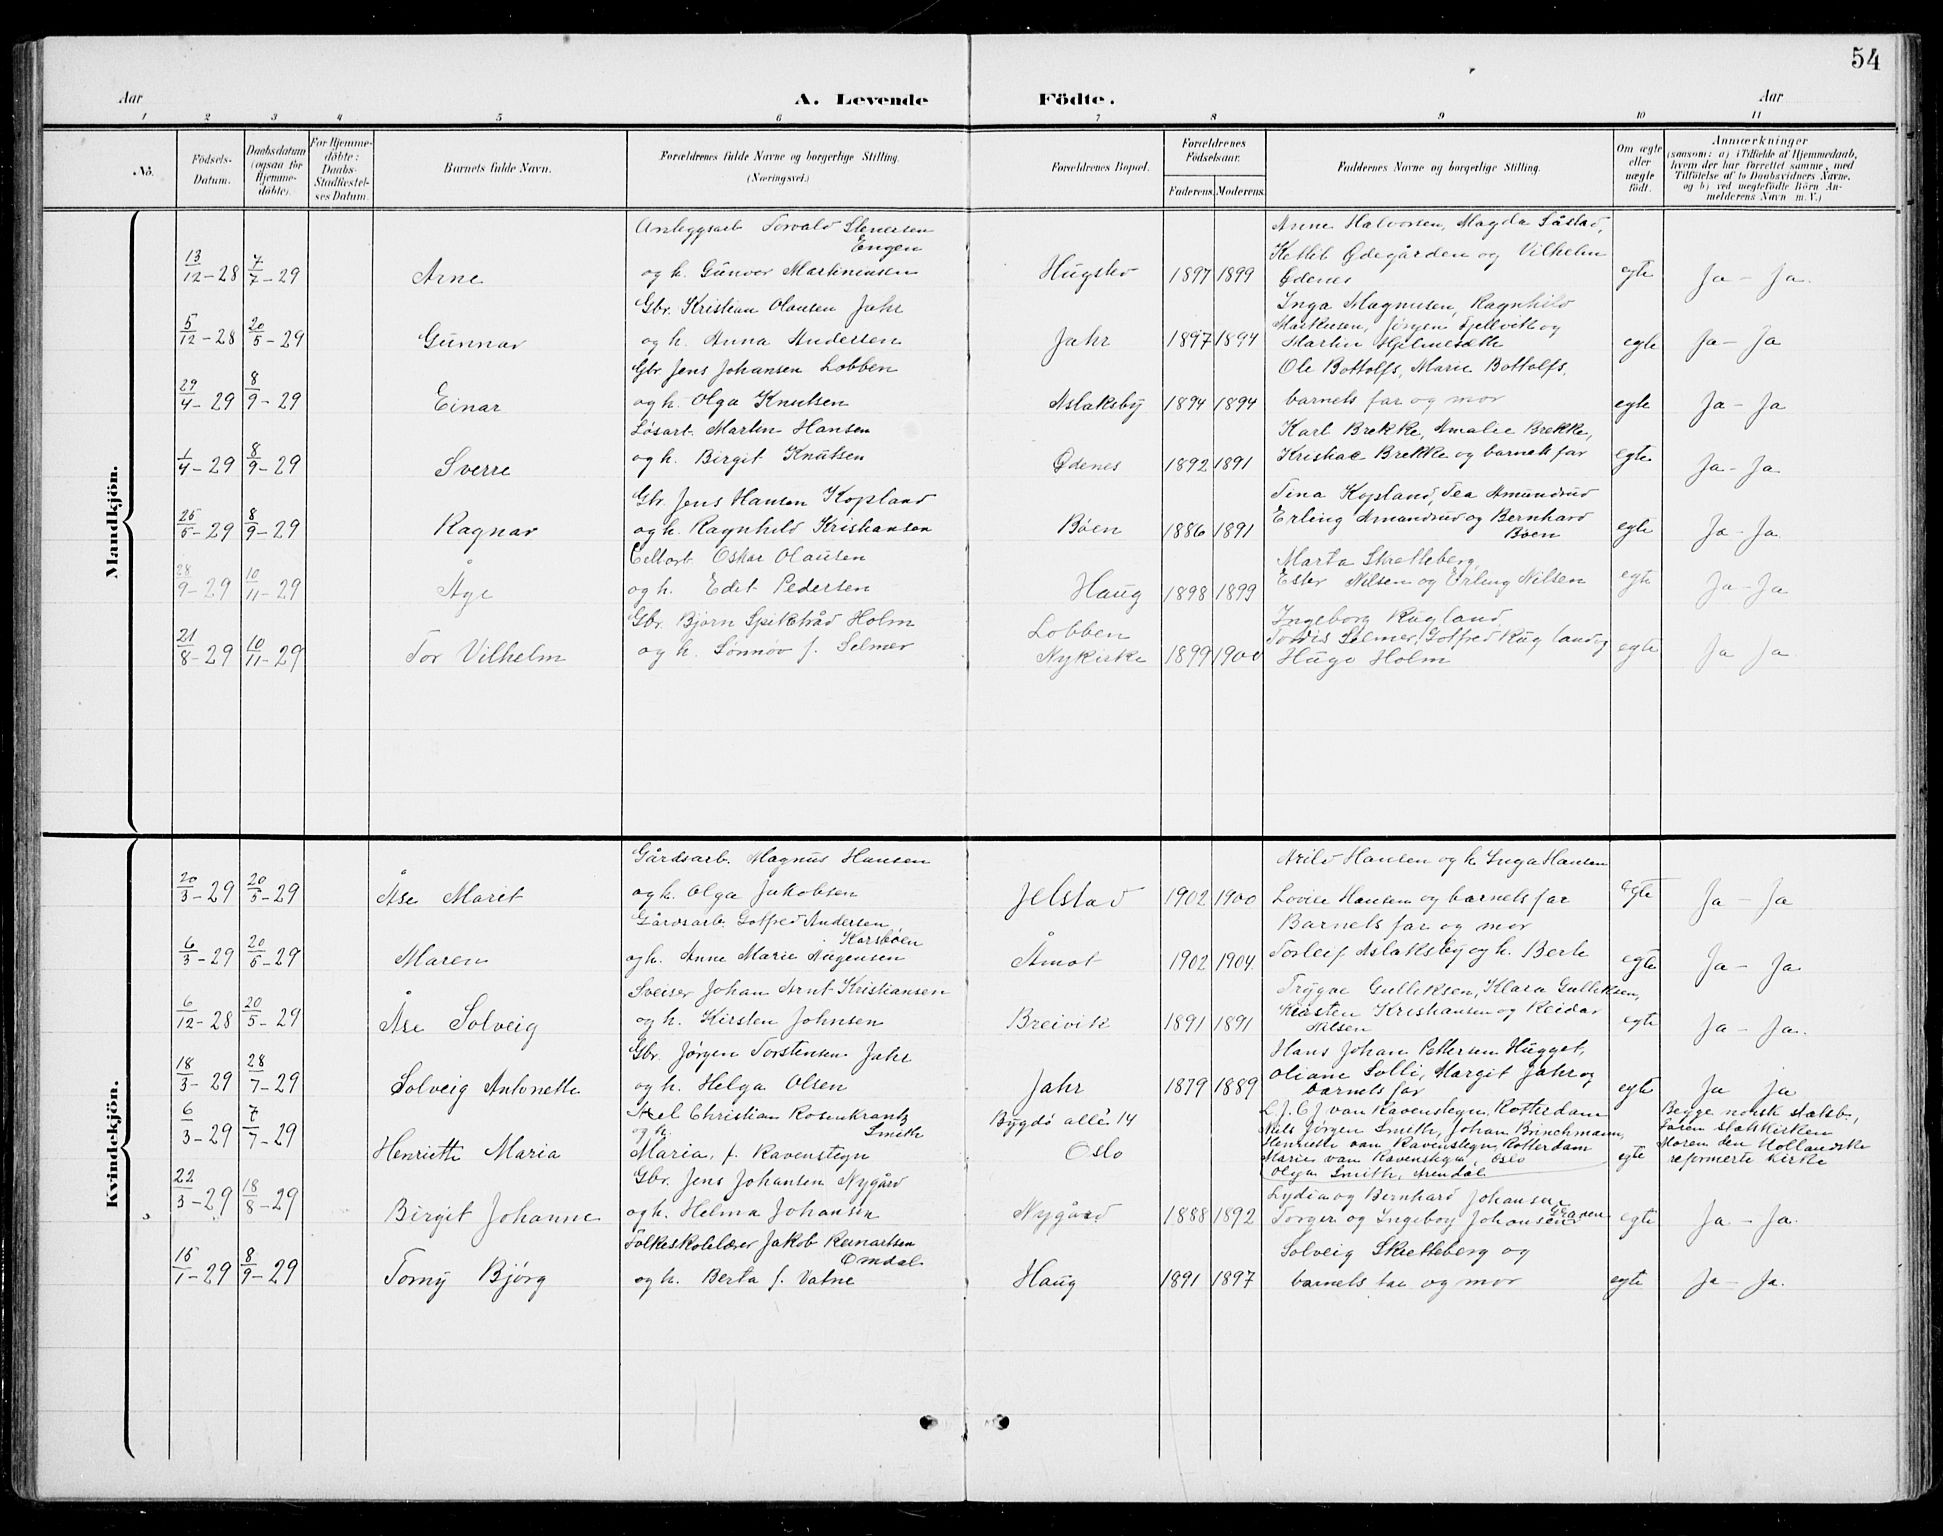 54
Aar
A. Levende
Födte.
Aar
1 2 3 4 5 6 7 8 9 10 11
No.
Födsels-
Datum.
Daabsdatum
(ogsaa for
Hjemme-
döbte).
For Hjemme-
döbte:
Daabs-
Stadfæstel-
ses Datum.
Barnets fulde Navn.
Forældrenes fulde Navne og borgerlige Stilling.
(Næringsvei.)
Forældrenes Bopæl.
Forældrenes
Födselsaar.
Faderens. Moderens.
Faddernes Navne og borgerlige Stilling.
Om ægte
eller
uægte
födt.
Anmærkninger
(saasom: a) i Tilfælde af Hjemmedaab,
hvem der har forrettet samme, med
Tilföielse af to Daabsvidners Navne,
og b) ved uægtefödte Börn An-
melderens Navn m. V.)
Mandkjön.
Anleggsarb Torvald Stenersen
Engen
Anne Halvorsen, Magda Såstad,
Kettil Ødegården og Vilhelm
13/12-28 7/7-29 Arne og h. Gunvor Martinensen Hugsted 1897 1899 Ødenes egte Ja - ja.
Gbr. Kristian Olausen Jahr Inga Magnusen, Ragnhild
5/12-28 20/5-29 Gunnar og h. Anna Andersen Jahr 1897 1894 Markusen, Jørgen Fjellvik og
Martin Hjelmesæth egte Ja - Ja
Gbr Jens Johansen Lobben Ole Bottolfs, Marie Bottolfs,
29/4-29 8/9-29 Einar og h. Olga Knutsen Aslaksby 1894 1894 barnets far og mor egte Ja - Ja
Løsarb. Martin Hansen Karl Brekke, Amalie Brekke,
1/4-29 8/9-29 Sverre og h. Birgit Knutsen Ødenes 1892 1891 Brekke og barnets far egte Ja - Ja
Gbr. Jens Hansen Kopland Tina Kopland, Tea Amundrud
25/5-29 8/9-29 Ragnar og h. Ragnhild Kristiansen Bøen 1886 1891 Erling Amundrud og Bernhard
Bøen egte Ja - Ja
Cellarb Oskar Olausen Marta Skretteberg,
28/9-29 10/11-29 Åge og h. Edit Pedersen Haug 1898 1899 Ester Nilsen og Erling Nilsen egte Ja - Ja
Gbr. Bjørn Spikstråd Holm Lobben Ingeborg Rugland,
21/8-29 10/11-29 Tor Vilhelm og h. Sønnøv f. Selmer Nykirke 1899 1900 Tordis Selmer, Gotfred Rugland og
Hugo Holm egte Ja Ja
Kvindekjön.
Gårdsarb. Magnus Hansen Arild Hansen og h. Inga Hansen
20/3-29 20/5-29 Åse Marit og h. Olga Jakobsen Jelstad 1902 1900 Lovise Hansen og barnets far egte Ja - Ja
Gårdsarb. Gotfred Andersen
Korsbøen Barnets far og mor
6/3-29 20/5-29 Maren og h. Anne Marie Augensen Åmot 1902 1904 Torleif Aslaksby og h. Berte egte Ja - Ja
Sveiser Johan Arnt Kristiansen Trygve Gulliksen, Klara Gulliksen,
6/12-28 20/5-29 Åse Solveig og h. Kirsten Johnsen Breivik 1891 1891 Karsten Kristiansen og Reidar
Nilsen egte Ja - Ja.
Gbr. Jørgen Torstensen Jahr Hans Johan Pettersen Hugget,
18/3-29 28/7-29 Solveig Antonette og h. Helga Olsen Jahr 1879 1889 Oliane Solli, Margit Jahr og
barnets far egte Ja ja
6/3-29 7/7-29 Henriette Maria Axel Christian Rosenkrantz
Smith
og h.
Maria, f. Ravenstegn Bygdø allé 14
Oslo
C. J. C. J. van Ravenstegn, Rotterdam
Nils Jørgen Smith, Johan Brinchmann,
Henriette van Ravenstegn, Rotterdam
Marie van Ravenstegn Oslo
Olga Smith, Arendal egte
Begge norske statsb.,
Faren statskirken
Moren den Hollandske
reformerte kirke
Gbr. Jens Johansen Nygård Lydia og Bernhard Johansen
22/3-29 18/8-29 Birgit Johanne og h. Helma Johansen Nygård 1888 1892 Torger og Ingeborg Johansen egte Ja - Ja.
Folkeskolelærer Jakob Reinartsen
Omdal Solveig Skretteberg og
15/1-29 8/9-29 Tomy Bjørg og h. Berta f. Vatne Haug 1891 1897 barnets far og mor egte Ja - Ja.